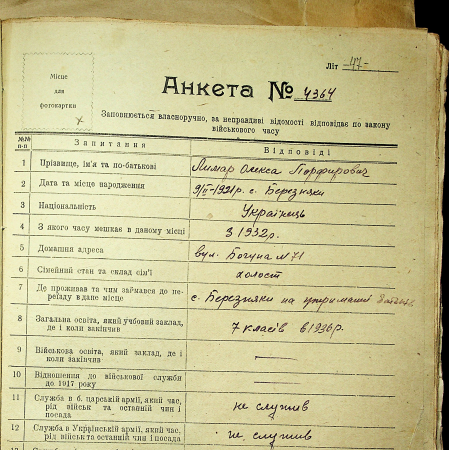 Літ -47-
Місце
для
фотокартки
Анкета № 4364
Заповнюється власноручно, за неправдиві відомості відповідає по закону
військового часу
№№ п-п Запитання Відповіді
1 Прізвище, ім'я та по-батькові Лимар Олекса Порфирович
2 Дата та місце народження 9/II-1921р. с. Березняки
3 Національність Українець
4 З якого часу мешкає в даному місці З 1932р.
5 Домашня адреса вул. Богуна №71
6 Сімейний стан та склад сім'ї холост
7 Де проживав та чим займався до пе-
реїзду в дане місце с. Березняки на утриманні
8 Загальна освіта, який учбовий заклад,
де і коли закінчив 7 класів в 1936р.
9 Військова освіта, який заклад, де і
коли закінчив —
10 Відношення до військової служби
до 1917 року —
11 Служба в б. царській армії, який час,
рід військ та останній чин і
посада не служив
12 Служба в Українській армії, який час,
рід військ та останній чин і посада не служив